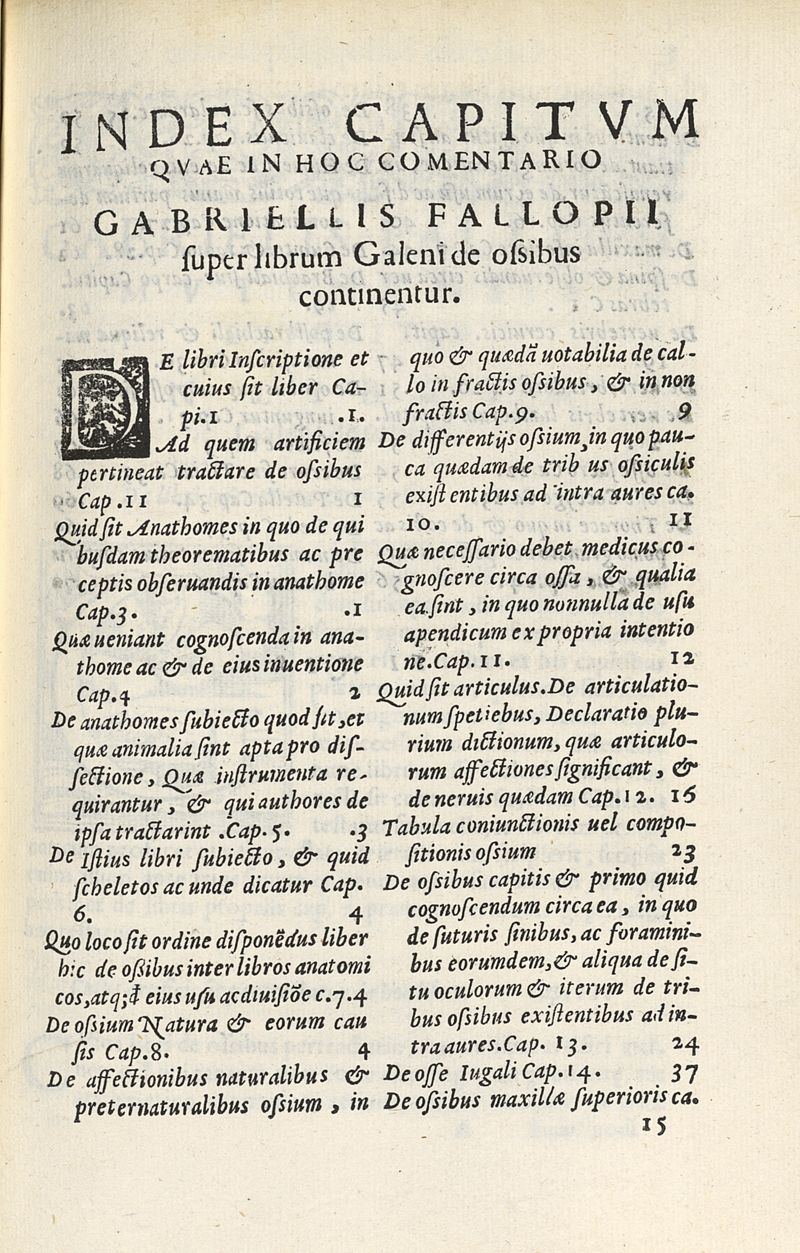 INDEX CAPITVM
QVAE IN HOC COMENTARIO
GABRIELLIS FALLOPII
ſuper librum Galeni de oſsibus
continentur.
DE libri Inſcriptione et
cuius ſit liber Ca-
pi.1 .1.
Ad quem artificiem
pertineat tractare de oſsibus
Cap .11 1
Quid ſit Anathomes in quo de qui
buſdam theorematibus ac pre
ceptis obſeruandis in anathome
Cap.3. .1
Quæ ueniant cognoſcenda in ana-
thome ac & de eius inuentione
Cap.4 2
De anathomes ſubiecto quod ſit,et
quæ animalia ſint apta pro diſ-
ſectione, Quæ inſtrumenta re-
quirantur, & qui authores de
ipſa tractarint .Cap.5. .3
De Iſtius libri ſubiecto, & quid
ſcheletos ac unde dicatur Cap.
6. 4
Quo loco ſit ordine diſponẽdus liber
hic de oſsibus inter libros anatomi
cos,atq; eius uſu ac diuiſiõe c.7.4
De oſsium Natura & eorum cau
ſis Cap.8. 4
De affectionibus naturalibus &
preternaturalibus oſsium, in
quo & quædã uotabilia de cal-
lo in fractis oſsibus, & in non
fractis Cap.9. 9
De differentijs oſsium,in quo pau-
ca quædam de trib us oſsiculis
exiſt entibus ad intra aures ca.
10. 11
Quæ neceſſario debet medicus co-
gnoſcere circa oſſa, & qualia
ea.ſint, in quo nonnulla de uſu
apendicum ex propria intentio
ne.Cap.11. 12
Quid ſit articulus.De articulatio-
num ſpetiebus, Declaratio plu-
rium dictionum, quæ articulo-
rum affectiones ſignificant, &
de neruis quædam Cap.12. 16
Tabula coniunctionis uel compo-
ſitionis oſsium 23
De oſsibus capitis & primo quid
cognoſcendum circa ea, in quo
de ſuturis ſinibus, ac foramini-
bus eorumdem,& aliqua de ſi-
tu oculorum & iterum de tri-
bus oſsibus exiſtentibus ad in-
tra aures.Cap. 13. 24
De oſſe Iugali Cap.14. 37
De oſsibus maxillæ ſuperioris ca.
15